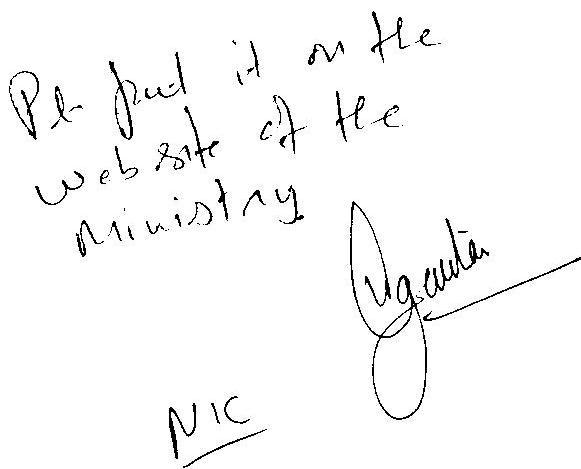 Pls put it on the
website of the
Ministry.
NIC